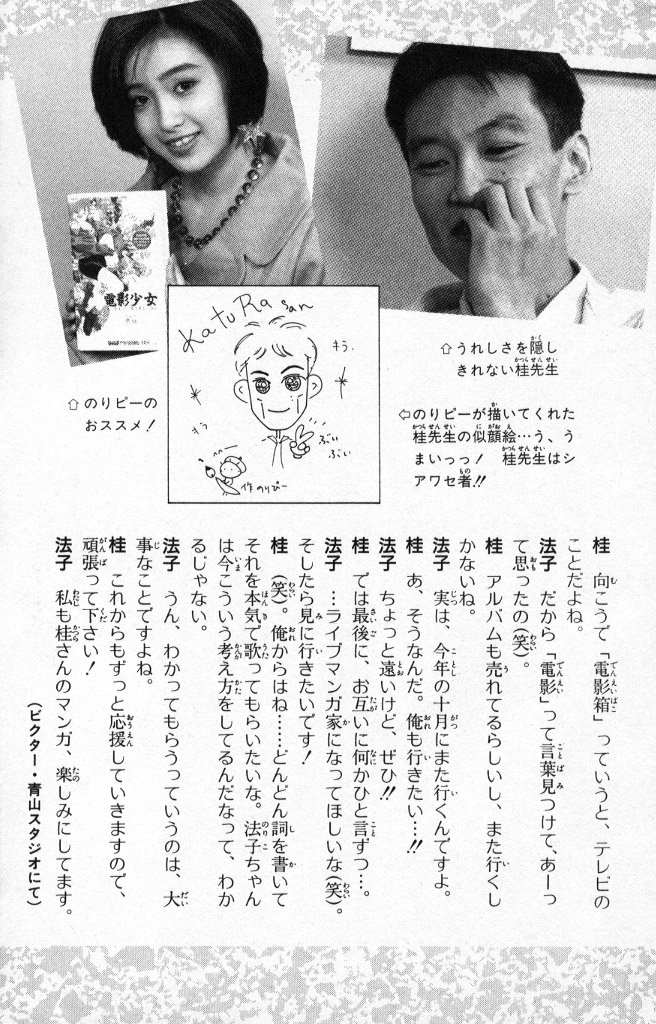 電影少女
KatuRa san
キラ
キラ
ぶい
ぶい
作 のりぴー
⇧のりピーの
おススメ！
⇧うれしさを隠し
きれない桂先生
⇦のりピーが描いてくれた
桂先生の似顔絵…う、う
まいっっ！　桂先生はシ
アワセ者!!
桂　向こうで「電影箱」っていうと、テレビの
ことだよね。
法子　だから「電影」って言葉見つけて、あーっ
て思ったの(笑)。
桂　アルバムも売れてるらしいし、また行くし
かないね。
法子　実は、今年の十月にまた行くんですよ。
桂　あ、そうなんだ。俺も行きたい…!!
法子　ちょっと遠いけど、ぜひ!!
桂　では最後に、お互いに何かひと言ずつ…。
法子　…ライブマンガ家になってほしいな(笑)。
そしたら見に行きたいです！
桂　(笑)。俺からはね……どんどん詞を書いて
それを本気で歌ってもらいたいな。法子ちゃん
は今こういう考え方をしてるんだなって、わか
るじゃない。
法子　うん、わかってもらうっていうのは、大
事なことですよね。
桂　これからもずっと応援していきますので、
頑張って下さい！
法子　私も桂さんのマンガ、楽しみにしてます。
(ビクター・青山スタジオにて)